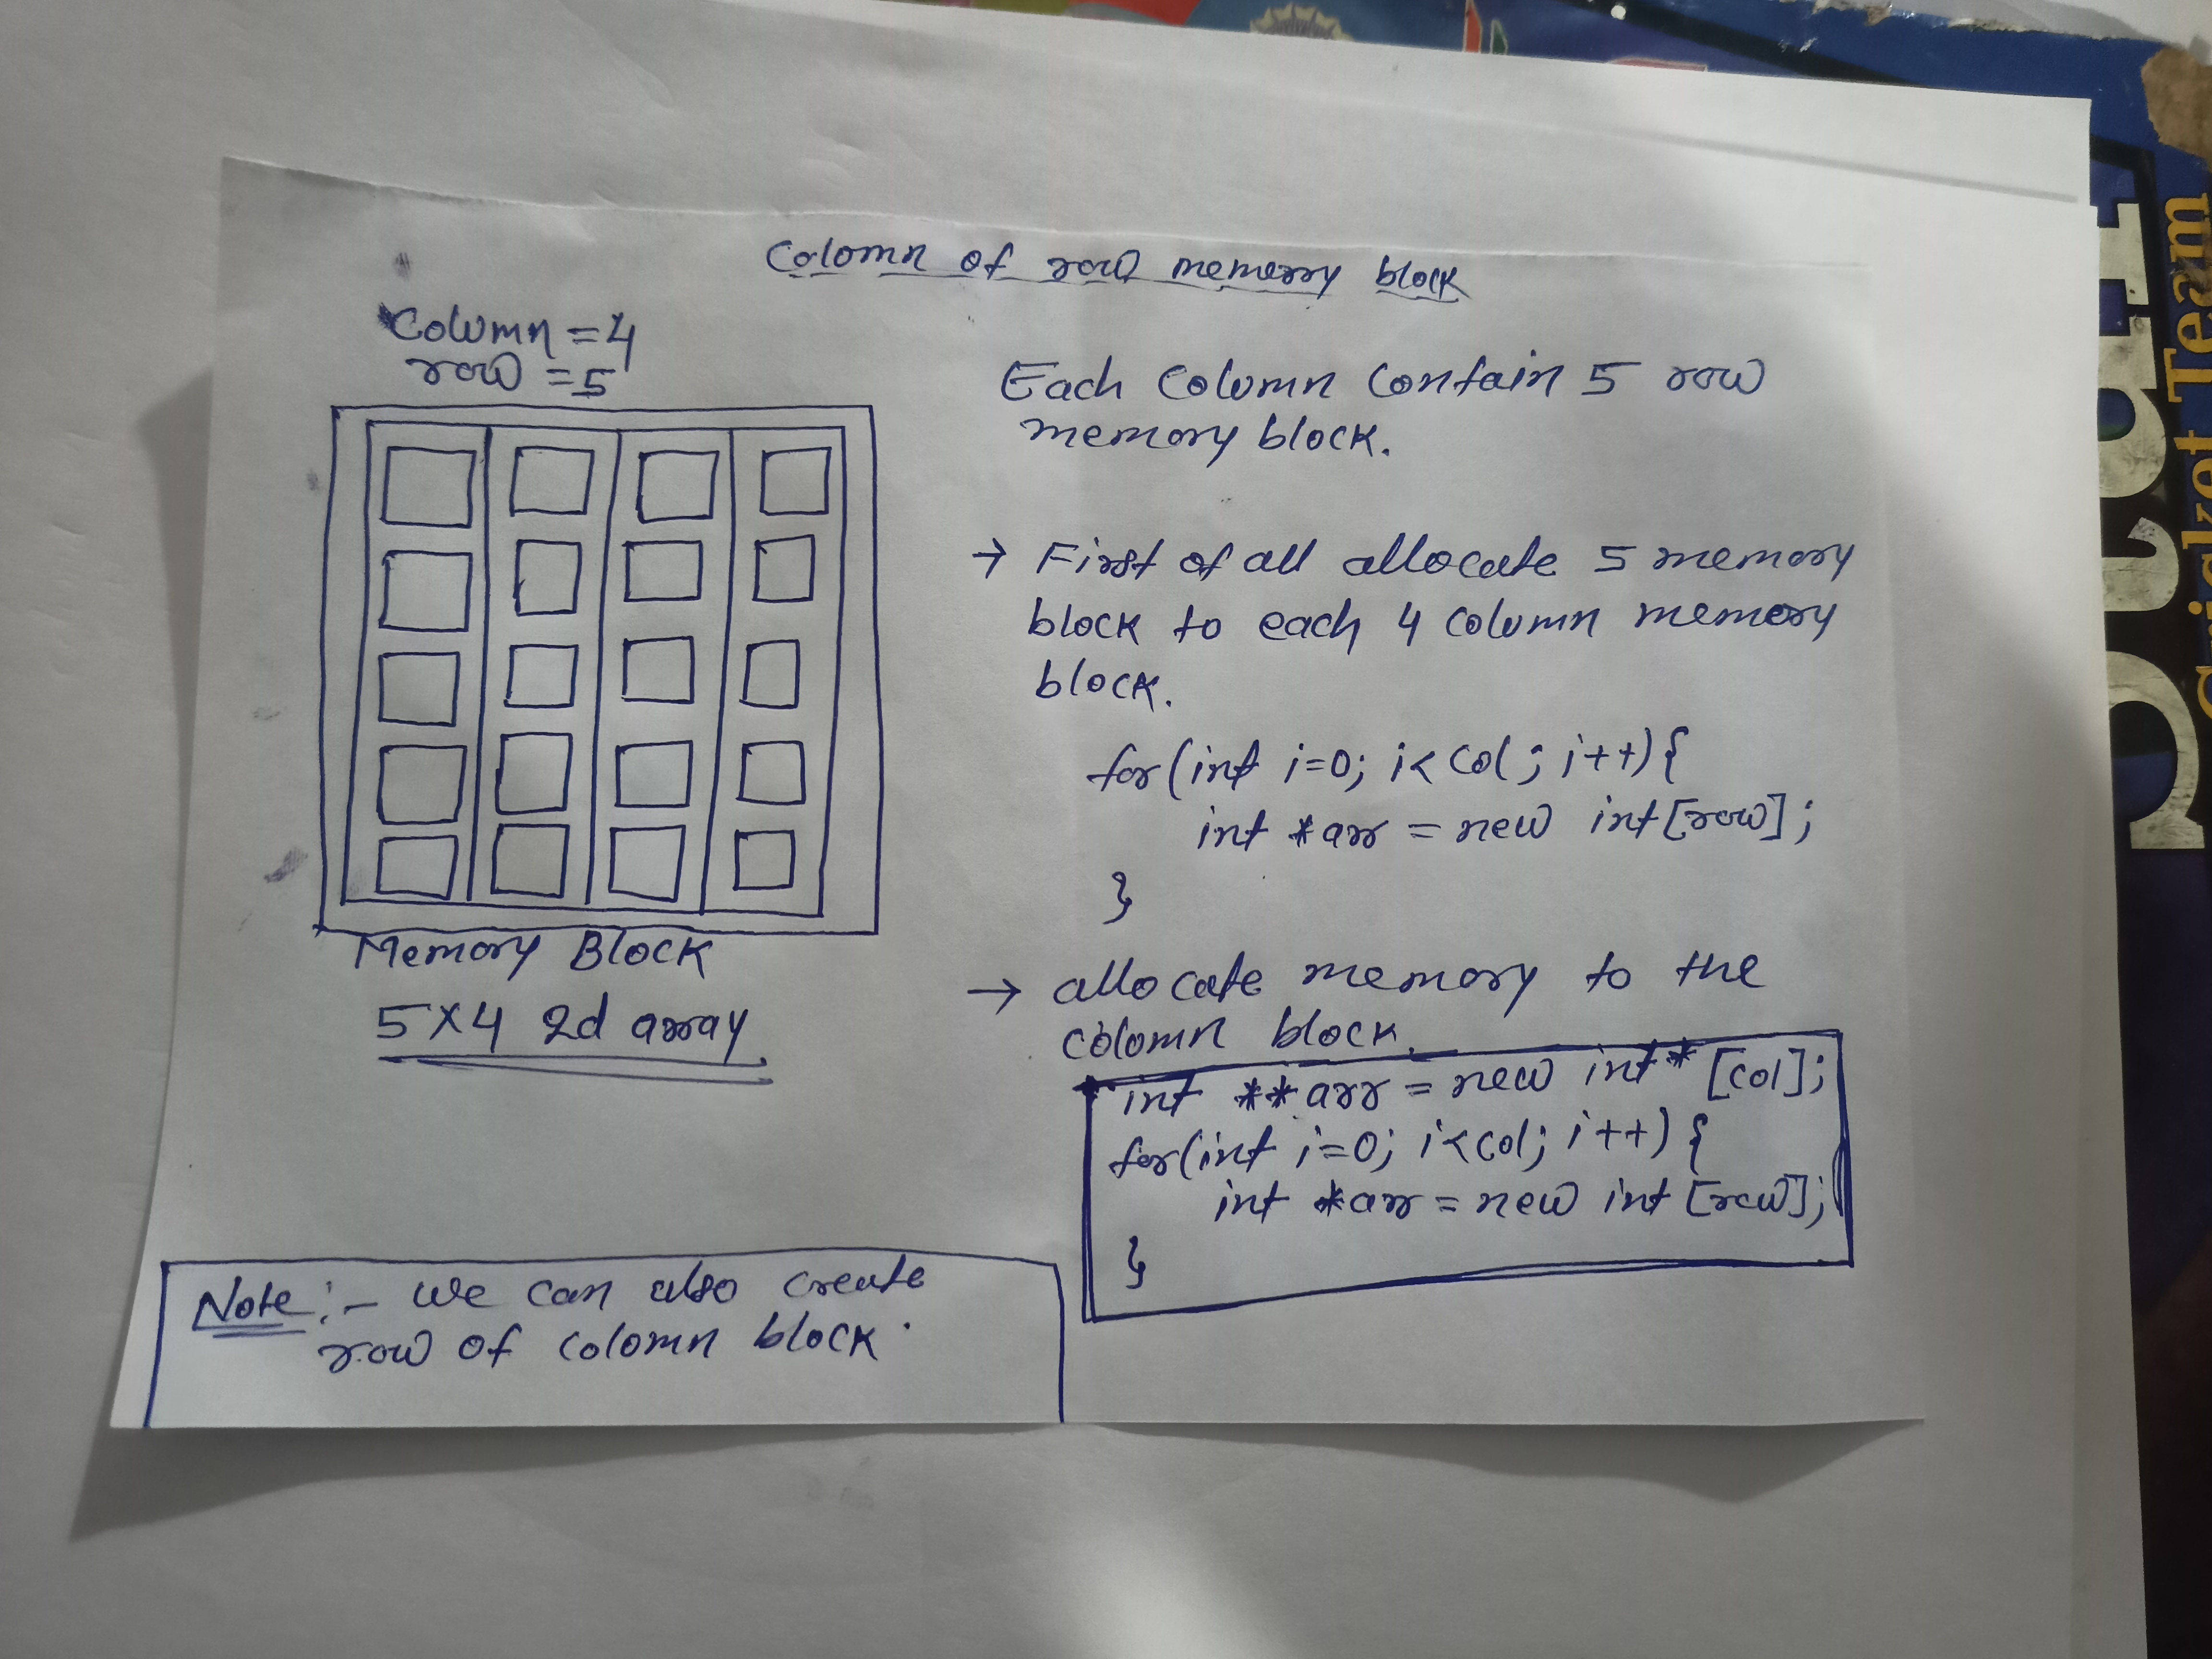 Colomn of row memerry block
Column = 4
row = 5
Memory Block
5x4 2d array
Each Column Contain 5 row
memory block.
→ First of all allocate 5 memory
block to each 4 column memory
block.
for(int i=0; i< Col; i++){
int *arr = new int[row];
}
→ allocate memory to the
colomn block.
int **arr = new int* [col];
for(int i=0; i<col; i++) {
int *arr = new int [row];
}
Note:- We can also create
row of colomn block.
Cricket Team